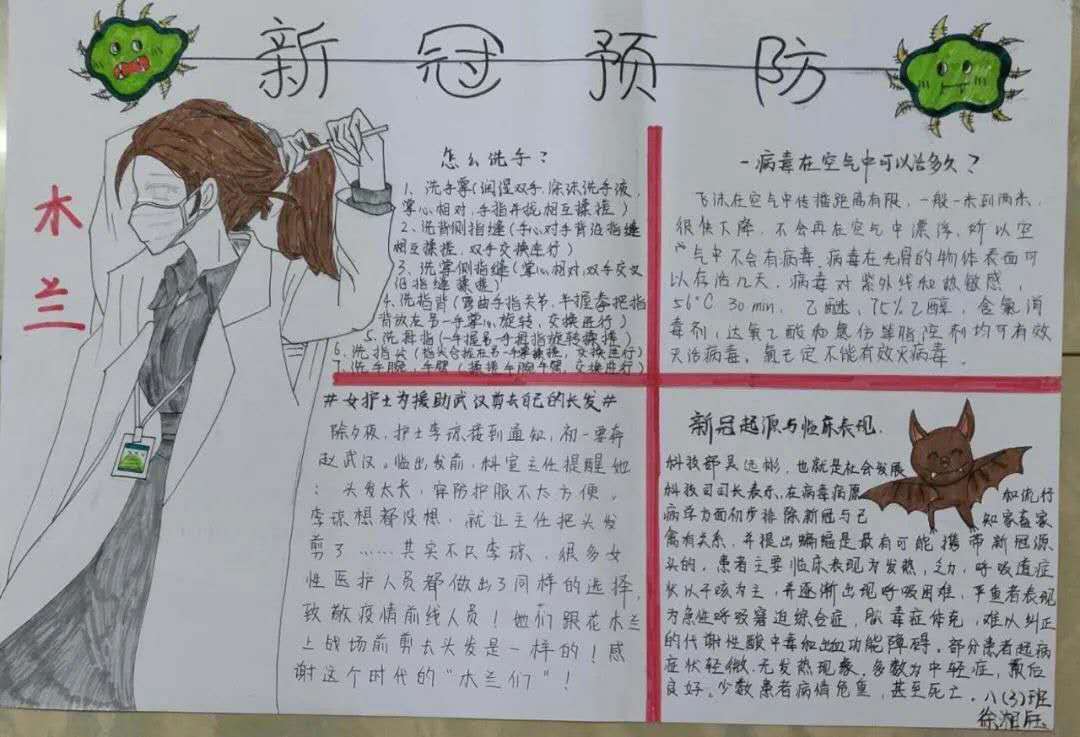 新冠预防
木兰
怎么洗手？
1、洗手掌（润湿双手，涂沫洗手液，
掌心相对，手指并拢相互揉搓）
2、洗背侧指缝（手心对手背沿指缝
相互揉搓，双手交换进行）
3、洗掌侧指缝（掌心相对，双手交叉
沿指缝揉搓）
4、洗指背（弯曲手指关节，半握拳把指
背放在另一手掌心旋转，交换进行）
5、洗拇指（一手握另一手拇指旋转揉搓）
6、洗指尖（指尖合拢在另一手掌揉搓，交换进行）
7、洗手腕，手臂（揉搓手腕手臂，交换进行）
一病毒在空气中可以活多久？
飞沫在空气中传播距离有限，一般一米到两米，
很快下降，不会再在空气中漂浮，所以空
气中不会有病毒，病毒在光滑的物体表面可
以存活几天，病毒对紫外线和热敏感，
56°C 30min、乙醚、75%乙醇、含氯消
毒剂、过氧乙酸和氯仿等脂溶剂均可有效
灭活病毒，氯己定不能有效灭病毒。
#女护士为援助武汉剪去自己的长发#
除夕夜，护士李琼接到通知，初一要奔
赴武汉。临出发前，科室主任提醒她
：头发太长，穿防护服不太方便。
李琼想都没想，就让主任把头发
剪了……其实不只李琼，很多女
性医护人员都做出了同样的选择，
致敬疫情前线人员！她们跟花木兰
上战场前剪去头发是一样的！感
谢这个时代的“木兰们”！
新冠起源与临床表现.
科技部吴远彬，也就是社会发展
科技司司长表示，在病毒病原 和流行
病学方面初步排除新冠与已 知家畜家
禽有关系，并提出蝙蝠是最有可能携带新冠源
头的，患者主要临床表现为发热，乏力，呼吸道症
状以干咳为主，并逐渐出现呼吸困难，严重者表现
为急性呼吸窘迫综合症，脓毒症休克，难以纠正
的代谢性酸中毒和出血功能障碍。部分患者起病
症状轻微，无发热现象，多数为中轻症，最后
良好。少数患者病情危重，甚至死亡。八（3）班
徐湘